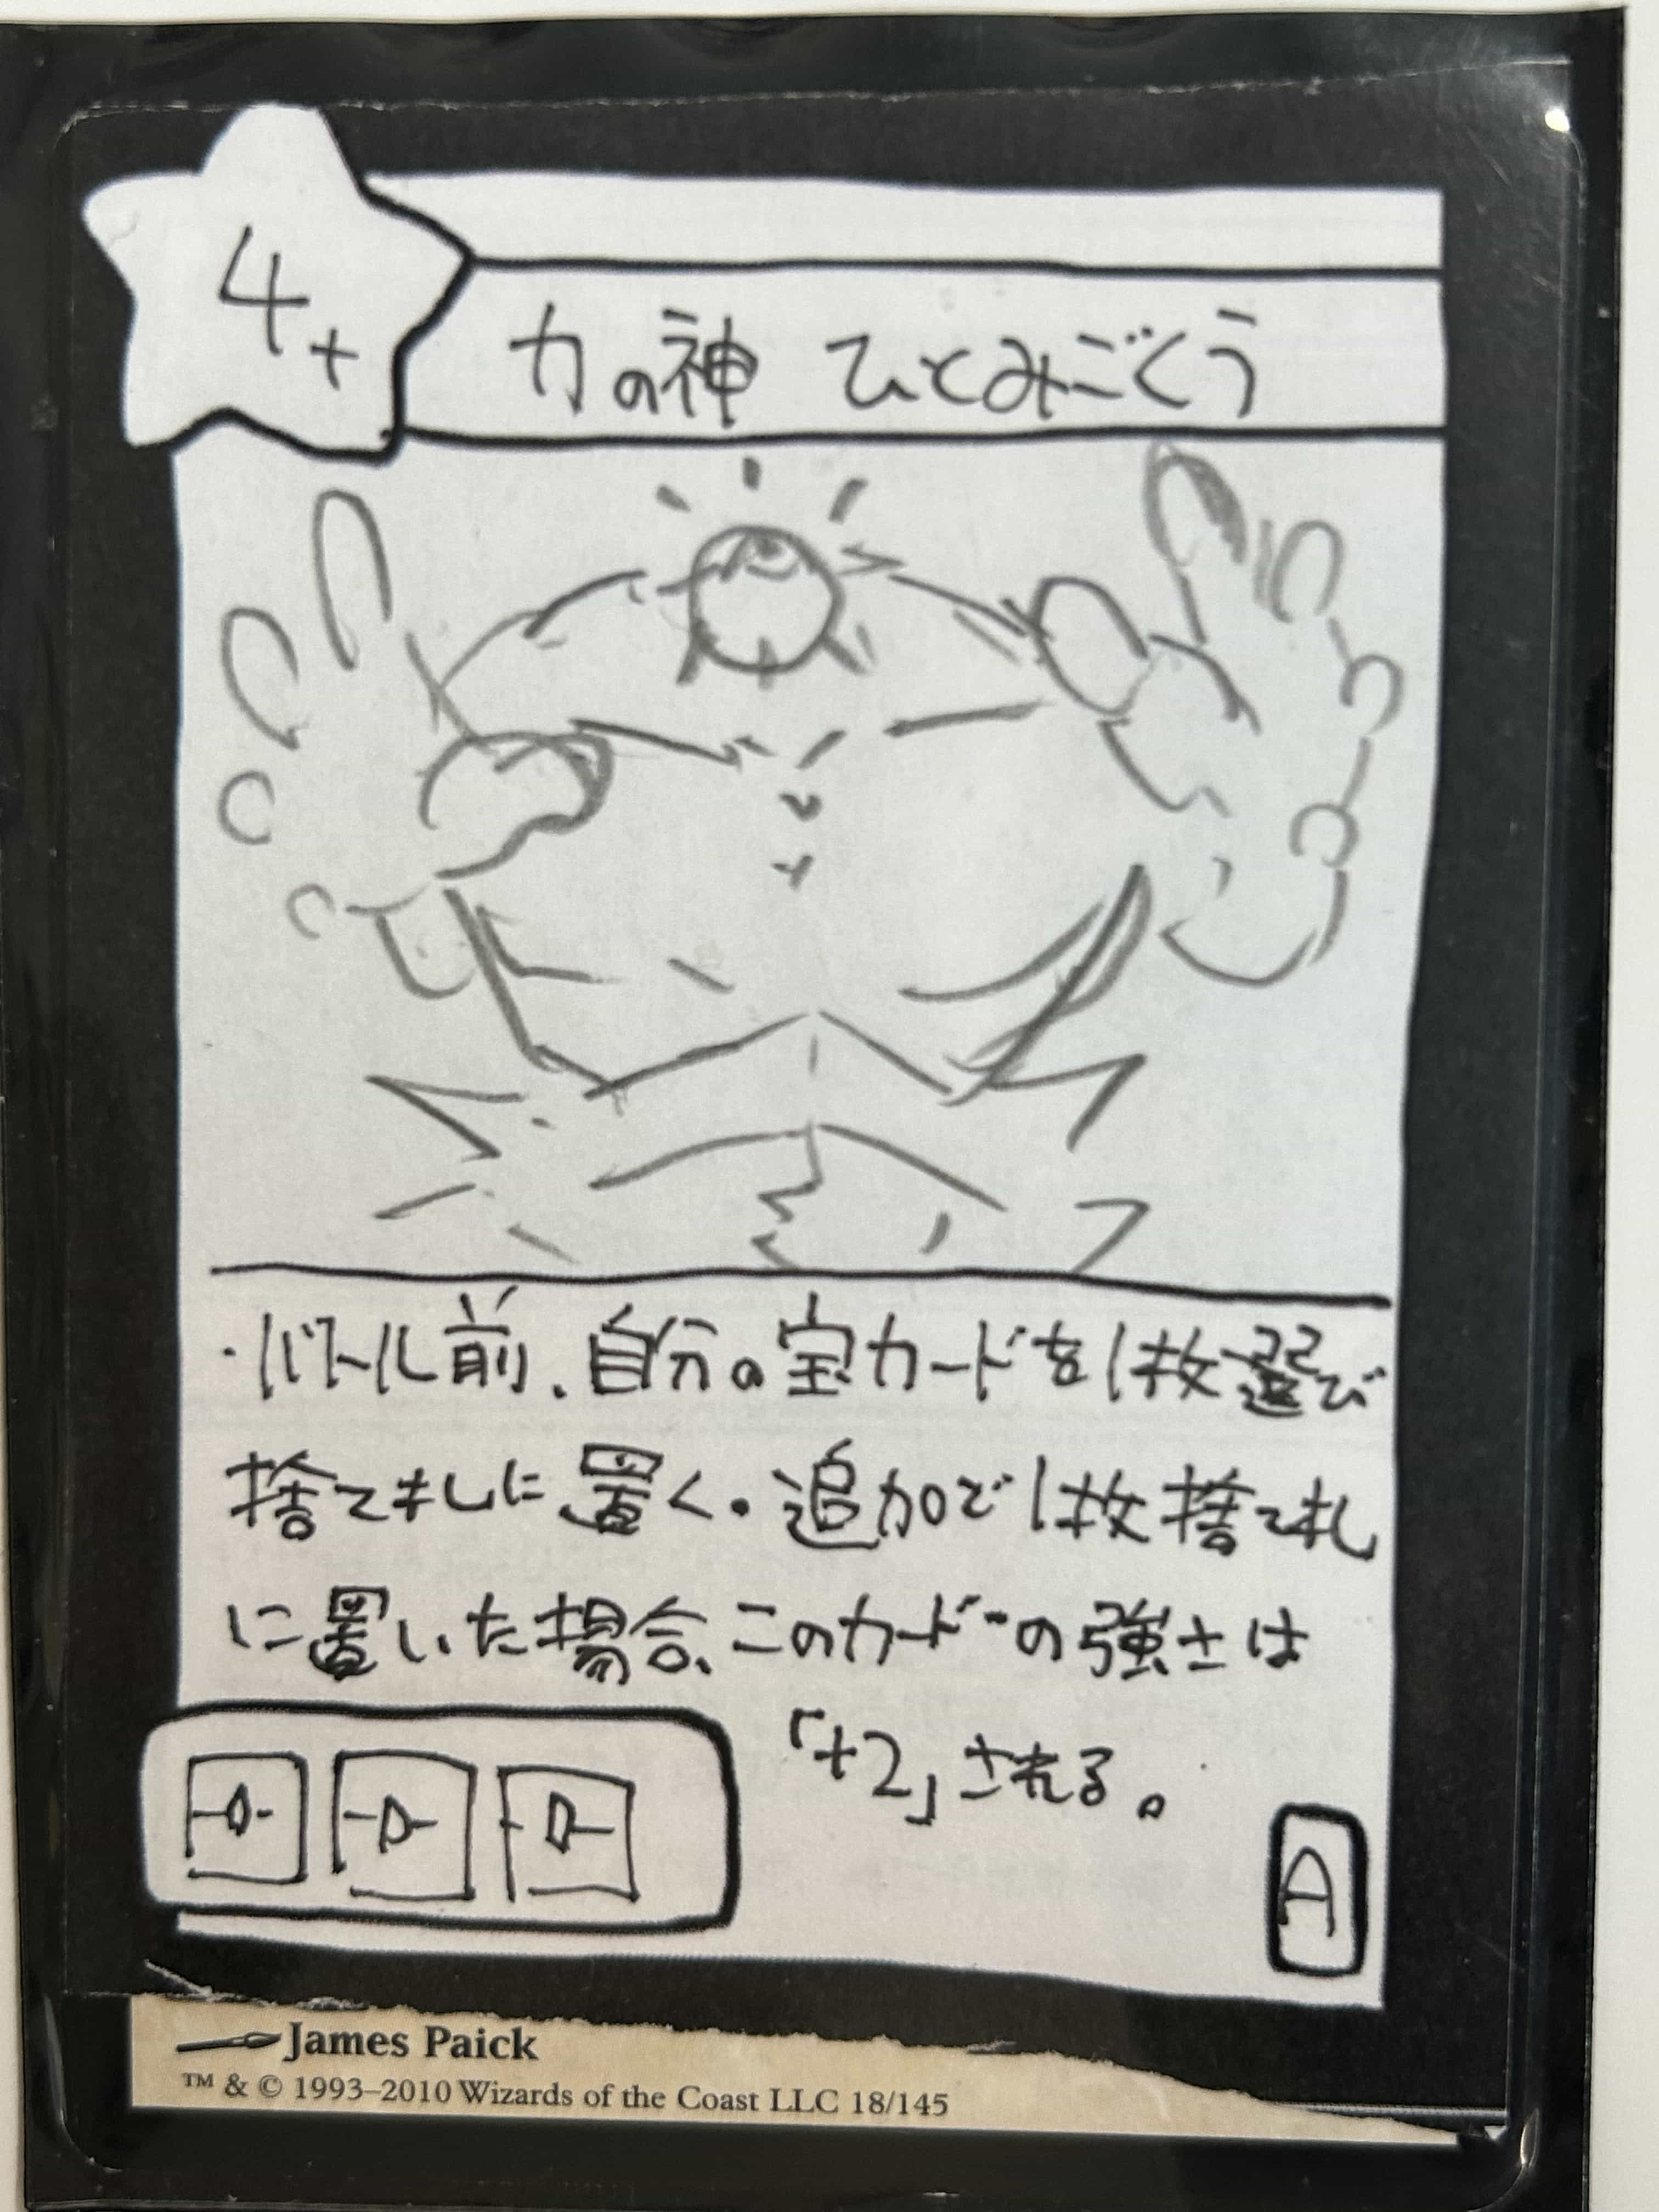 4+
力の神 ひとみごくう
・バトル前、自分の宝カードを1枚選び
捨て札に置く。追加で1枚捨て札
に置いた場合、このカードの強さは
「+2」される。
A
James Paick
™ & © 1993–2010 Wizards of the Coast LLC 18/145